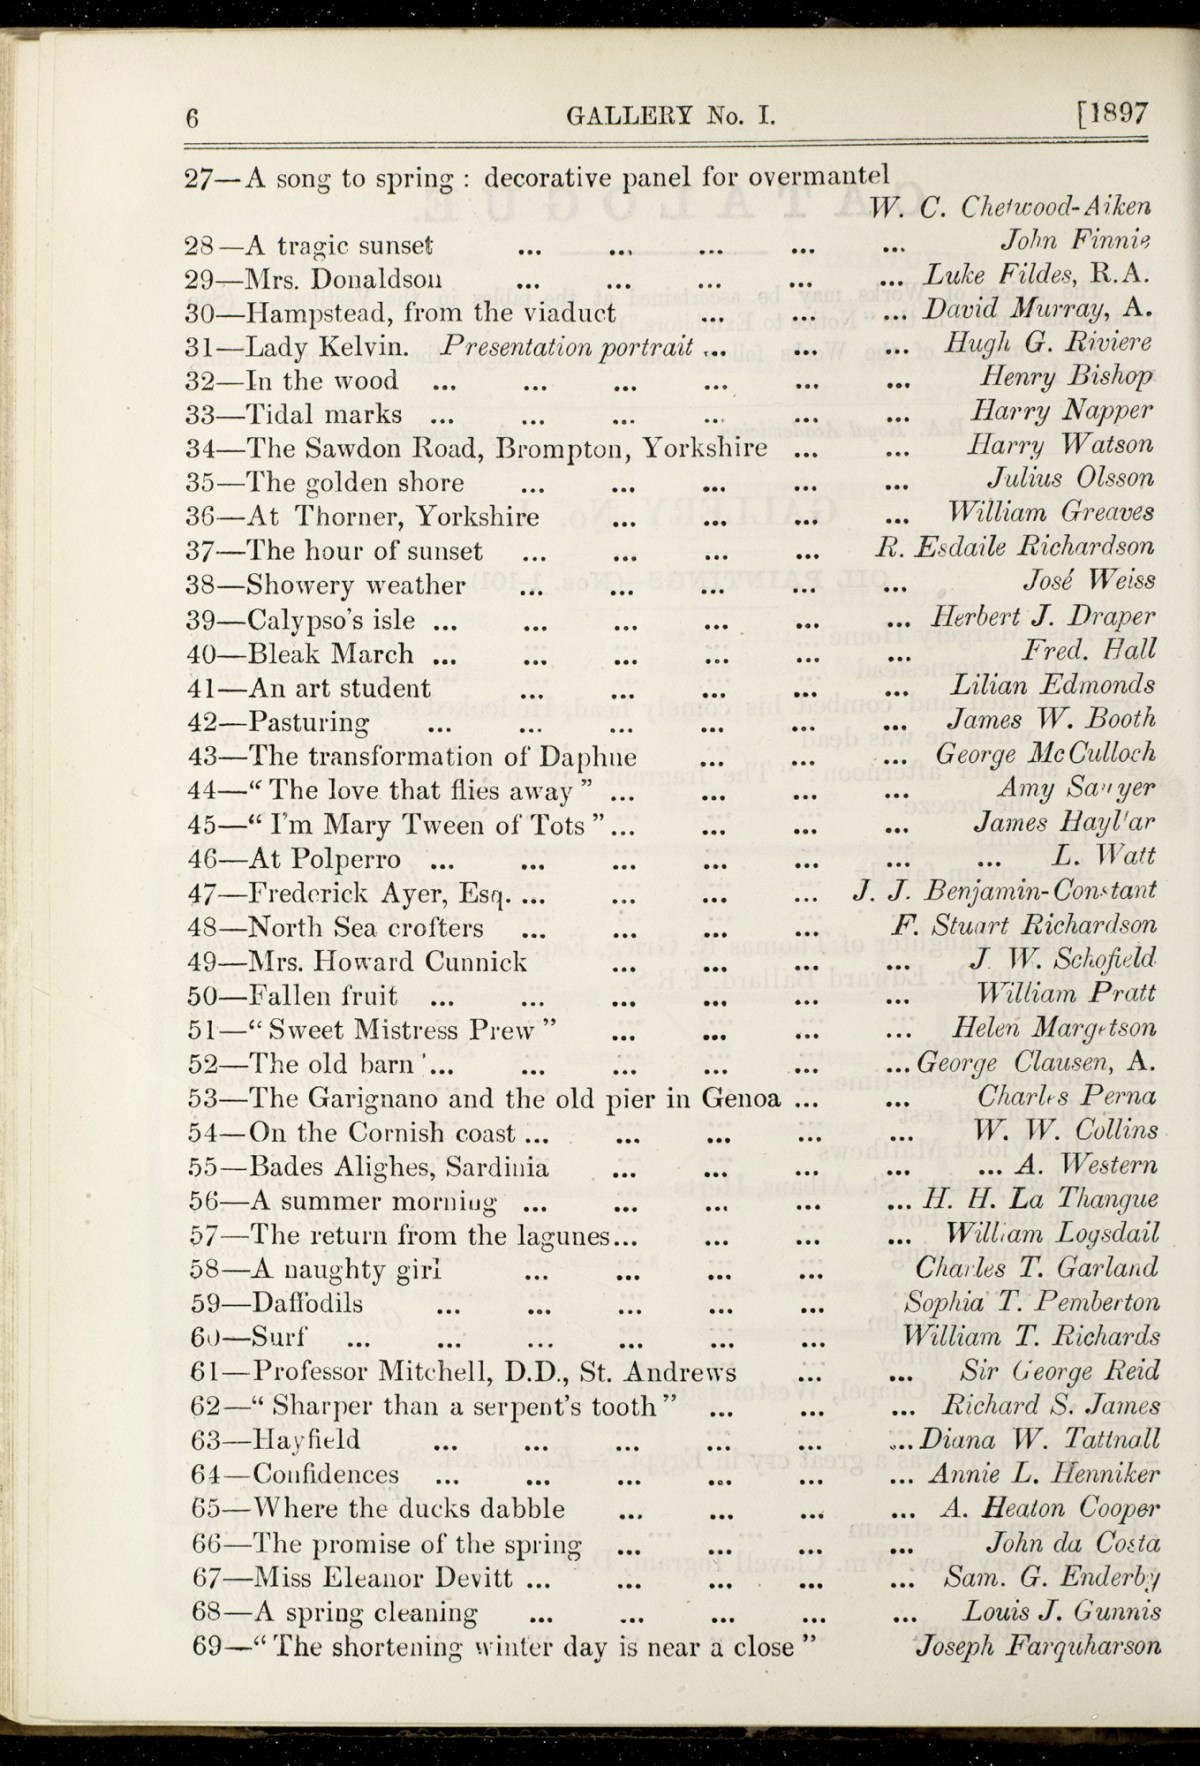 6 GALLERY No. I. [1897
27—A song to spring : decorative panel for overmantel
W. C. Chetwood-Aiken
28—A tragic sunset ... ... ... ... ... John Finnie
29—Mrs. Donaldson ... ... ... ... ... Luke Fildes, R.A.
30—Hampstead, from the viaduct ... ... ... David Murray, A.
31—Lady Kelvin. Presentation portrait ... ... ... Hugh G. Riviere
32—In the wood ... ... ... ... ... ... Henry Bishop
33—Tidal marks ... ... ... ... ... ... Harry Napper
34—The Sawdon Road, Brompton, Yorkshire ... ... Harry Watson
35—The golden shore ... ... ... ... ... Julius Olsson
36—At Thorner, Yorkshire ... ... ... ... William Greaves
37—The hour of sunset ... ... ... ... R. Esdaile Richardson
38—Showery weather ... ... ... ... ... José Weiss
39—Calypso's isle ... ... ... ... ... ... Herbert J. Draper
40—Bleak March ... ... ... ... ... ... Fred. Hall
41—An art student ... ... ... ... ... Lilian Edmonds
42—Pasturing ... ... ... ... ... ... James W. Booth
43—The transformation of Daphne ... ... ... George McCulloch
44—“ The love that flies away ” ... ... ... ... Amy Sawyer
45—“ I'm Mary Tween of Tots ”... ... ... ... James Hayllar
46—At Polperro ... ... ... ... ... ... ... L. Watt
47—Frederick Ayer, Esq. ... ... ... ... J. J. Benjamin-Constant
48—North Sea crofters ... ... ... ... F. Stuart Richardson
49—Mrs. Howard Cunnick ... ... ... ... J. W. Schofield
50—Fallen fruit ... ... ... ... ... ... William Pratt
51—“ Sweet Mistress Prew ” ... ... ... ... Helen Margetson
52—The old barn ... ... ... ... ... ... George Clausen, A.
53—The Garignano and the old pier in Genoa ... ... Charles Perna
54—On the Cornish coast ... ... ... ... ... W. W. Collins
55—Bades Alighes, Sardinia ... ... ... ... ... A. Western
56—A summer morning ... ... ... ... ... H. H. La Thangue
57—The return from the lagunes... ... ... ... William Logsdail
58—A naughty girl ... ... ... ... Charles T. Garland
59—Daffodils ... ... ... ... ... Sophia T. Pemberton
60—Surf ... ... ... ... ... ... William T. Richards
61—Professor Mitchell, D.D., St. Andrews ... ... Sir George Reid
62—“ Sharper than a serpent's tooth ” ... ... ... Richard S. James
63—Hayfield ... ... ... ... ... ... Diana W. Tattnall
64—Confidences ... ... ... ... ... ... Annie L. Henniker
65—Where the ducks dabble ... ... ... ... A. Heaton Cooper
66—The promise of the spring ... ... ... ... John da Costa
67—Miss Eleanor Devitt ... ... ... ... ... Sam. G. Enderby
68—A spring cleaning ... ... ... ... ... Louis J. Gunnis
69—“ The shortening winter day is near a close ” Joseph Farquharson